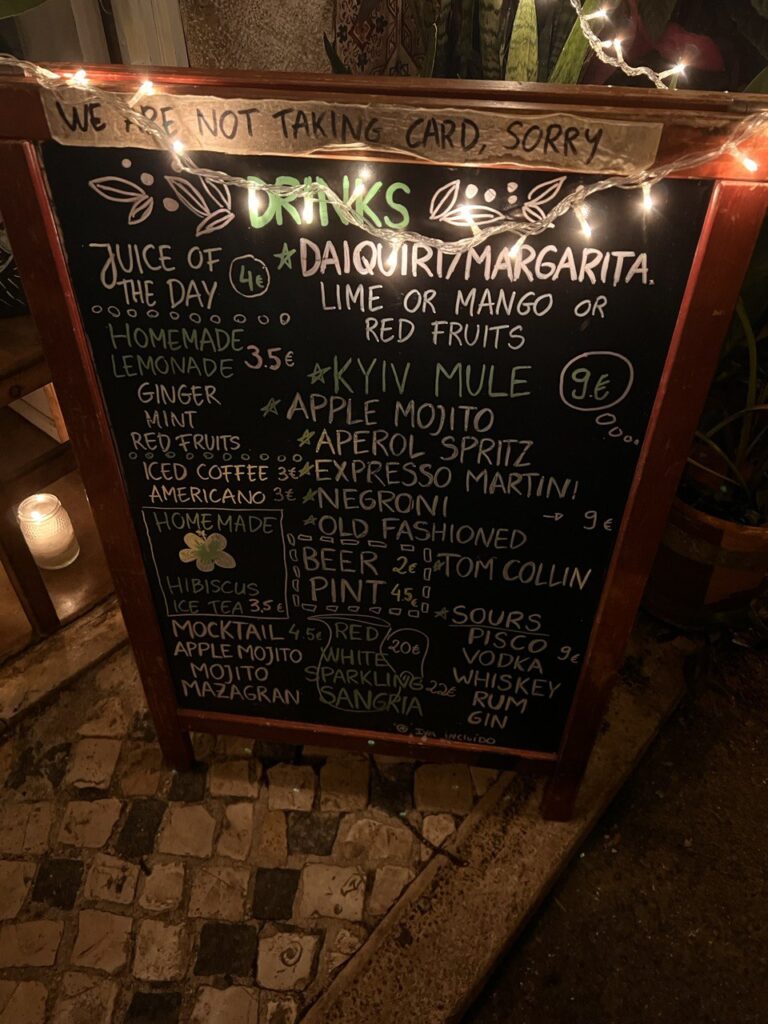 WE ARE NOT TAKING CARD, SORRY
DRINKS
JUICE OF
THE DAY 4€
HOMEMADE
LEMONADE 3.5€
GINGER
MINT
RED FRUITS
ICED COFFEE 3€
AMERICANO 3€
HOMEMADE
HIBISCUS
ICE TEA 3.5€
MOCKTAIL 4.5€
APPLE MOJITO
MOJITO
MAZAGRAN
DAIQUIRI/MARGARITA.
LIME OR MANGO OR
RED FRUITS
KYIV MULE 9€
APPLE MOJITO
APEROL SPRITZ
EXPRESSO MARTINI
NEGRONI → 9€
OLD FASHIONED
BEER 2€
PINT 4.5€
TOM COLLIN
RED
WHITE 20€
SPARKLING 22€
SANGRIA
SOURS
PISCO
VODKA 9€
WHISKEY
RUM
GIN
IVA INCLUÍDO